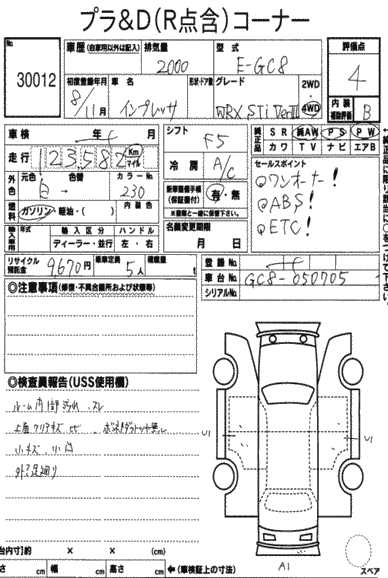 プラ&D(R点含)コーナー
No. 30012
車歴(自家用以外は記入) 排気量 2000 型式 E-GC8 評価点 4
初度登録年月 8/11月 車名 インプレッサ 形状・ドア数 グレード WRX STi VerⅢ 2WD 4WD 内装補助評価 B
車検 年 月 シフト F5 純正品 SR 純AW PS PW
走行 123582 Km マイル 冷房 A/C カワ TV ナビ エアB
外色 元色 白→ 色替 カラーNo. 230
新車整備手帳(保証書付) 有・無 ※車歴と一緒に保管下さい。
セールスポイント
◎ワンオーナー!
◎ABS!
◎ETC!
燃料 ガソリン・軽油・( ) 内装色
名義変更期限 月 日
輸入車用 年式 輸入区分 ハンドル
ディーラー・並行 左・右
リサイクル預託金 9670円 乗車定員 5人 積載量
登録No.
車台No. GC8-050705
シリアルNo.
◎注意事項(修復・不具合箇所および状態等)
◎検査員報告(USS使用欄)
ルーム内部汚れ、スレ
小キズ 小凹
外装足廻り
U1
U1
A1
スペア
台内寸)約 × × (cm)
さ cm 幅 cm 高さ cm ←(車検証上の寸法)